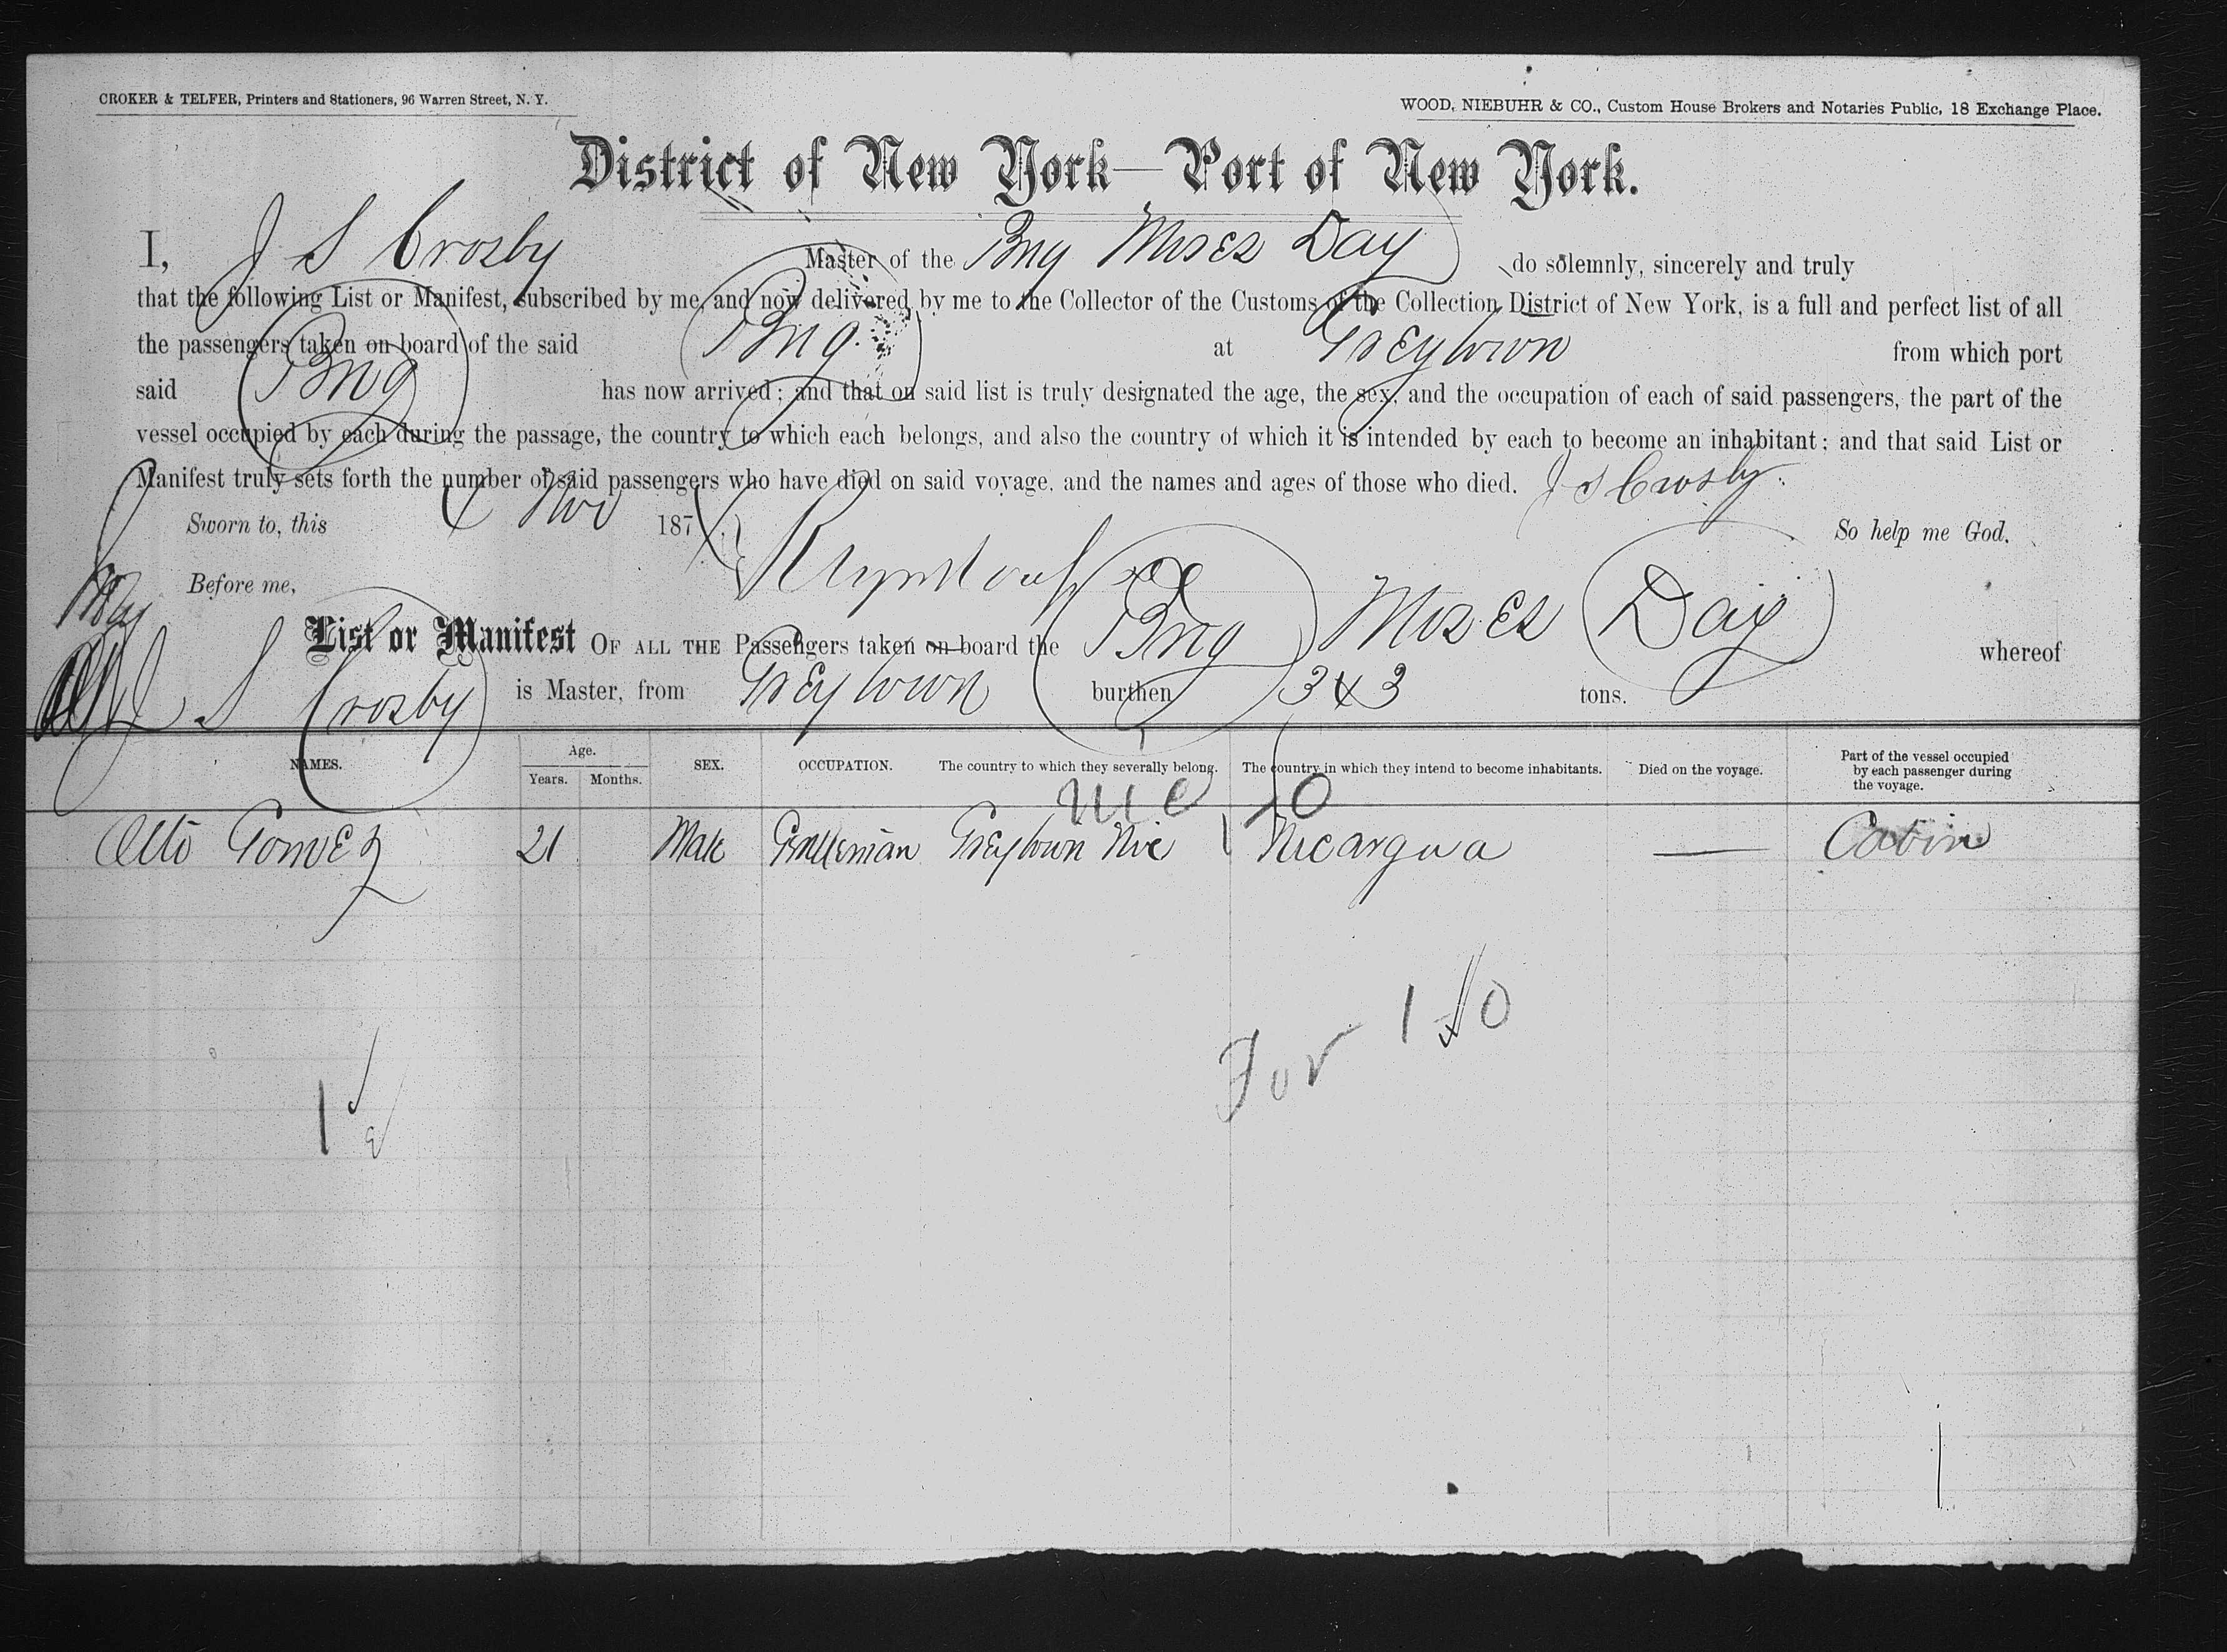 CROKER & TELFER, Printers and Stationers, 96 Warren Street, N. Y.
WOOD, NIEBUHR & CO., Custom House Brokers and Notaries Public, 18 Exchange Place.
District of New York—Port of New York.
I, J S Crosby Master of the Brig Moses Day do solemnly, sincerely and truly
that the following List or Manifest, subscribed by me, and now delivered by me to the Collector of the Customs of the Collection District of New York, is a full and perfect list of all
the passengers taken on board of the said Brig. at Greytown from which port
said Brig has now arrived; and that on said list is truly designated the age, the sex, and the occupation of each of said passengers, the part of the
vessel occupied by each during the passage, the country to which each belongs, and also the country of which it is intended by each to become an inhabitant; and that said List or
Manifest truly sets forth the number of said passengers who have died on said voyage, and the names and ages of those who died. J S Crosby
Sworn to, this Nov 187 So help me God.
Before me,
List or Manifest OF ALL THE Passengers taken on board the Brig Moses Day whereof
J S Crosby is Master, from Greytown burthen 343 tons.
NAMES. Age. Years. Months. SEX. OCCUPATION. The country to which they severally belong. The country in which they intend to become inhabitants. Died on the voyage. Part of the vessel occupied by each passenger during the voyage.
Otto Gomez 21 Male Gentleman Greytown Nic Nicargua — Cabin
For 1 0
1